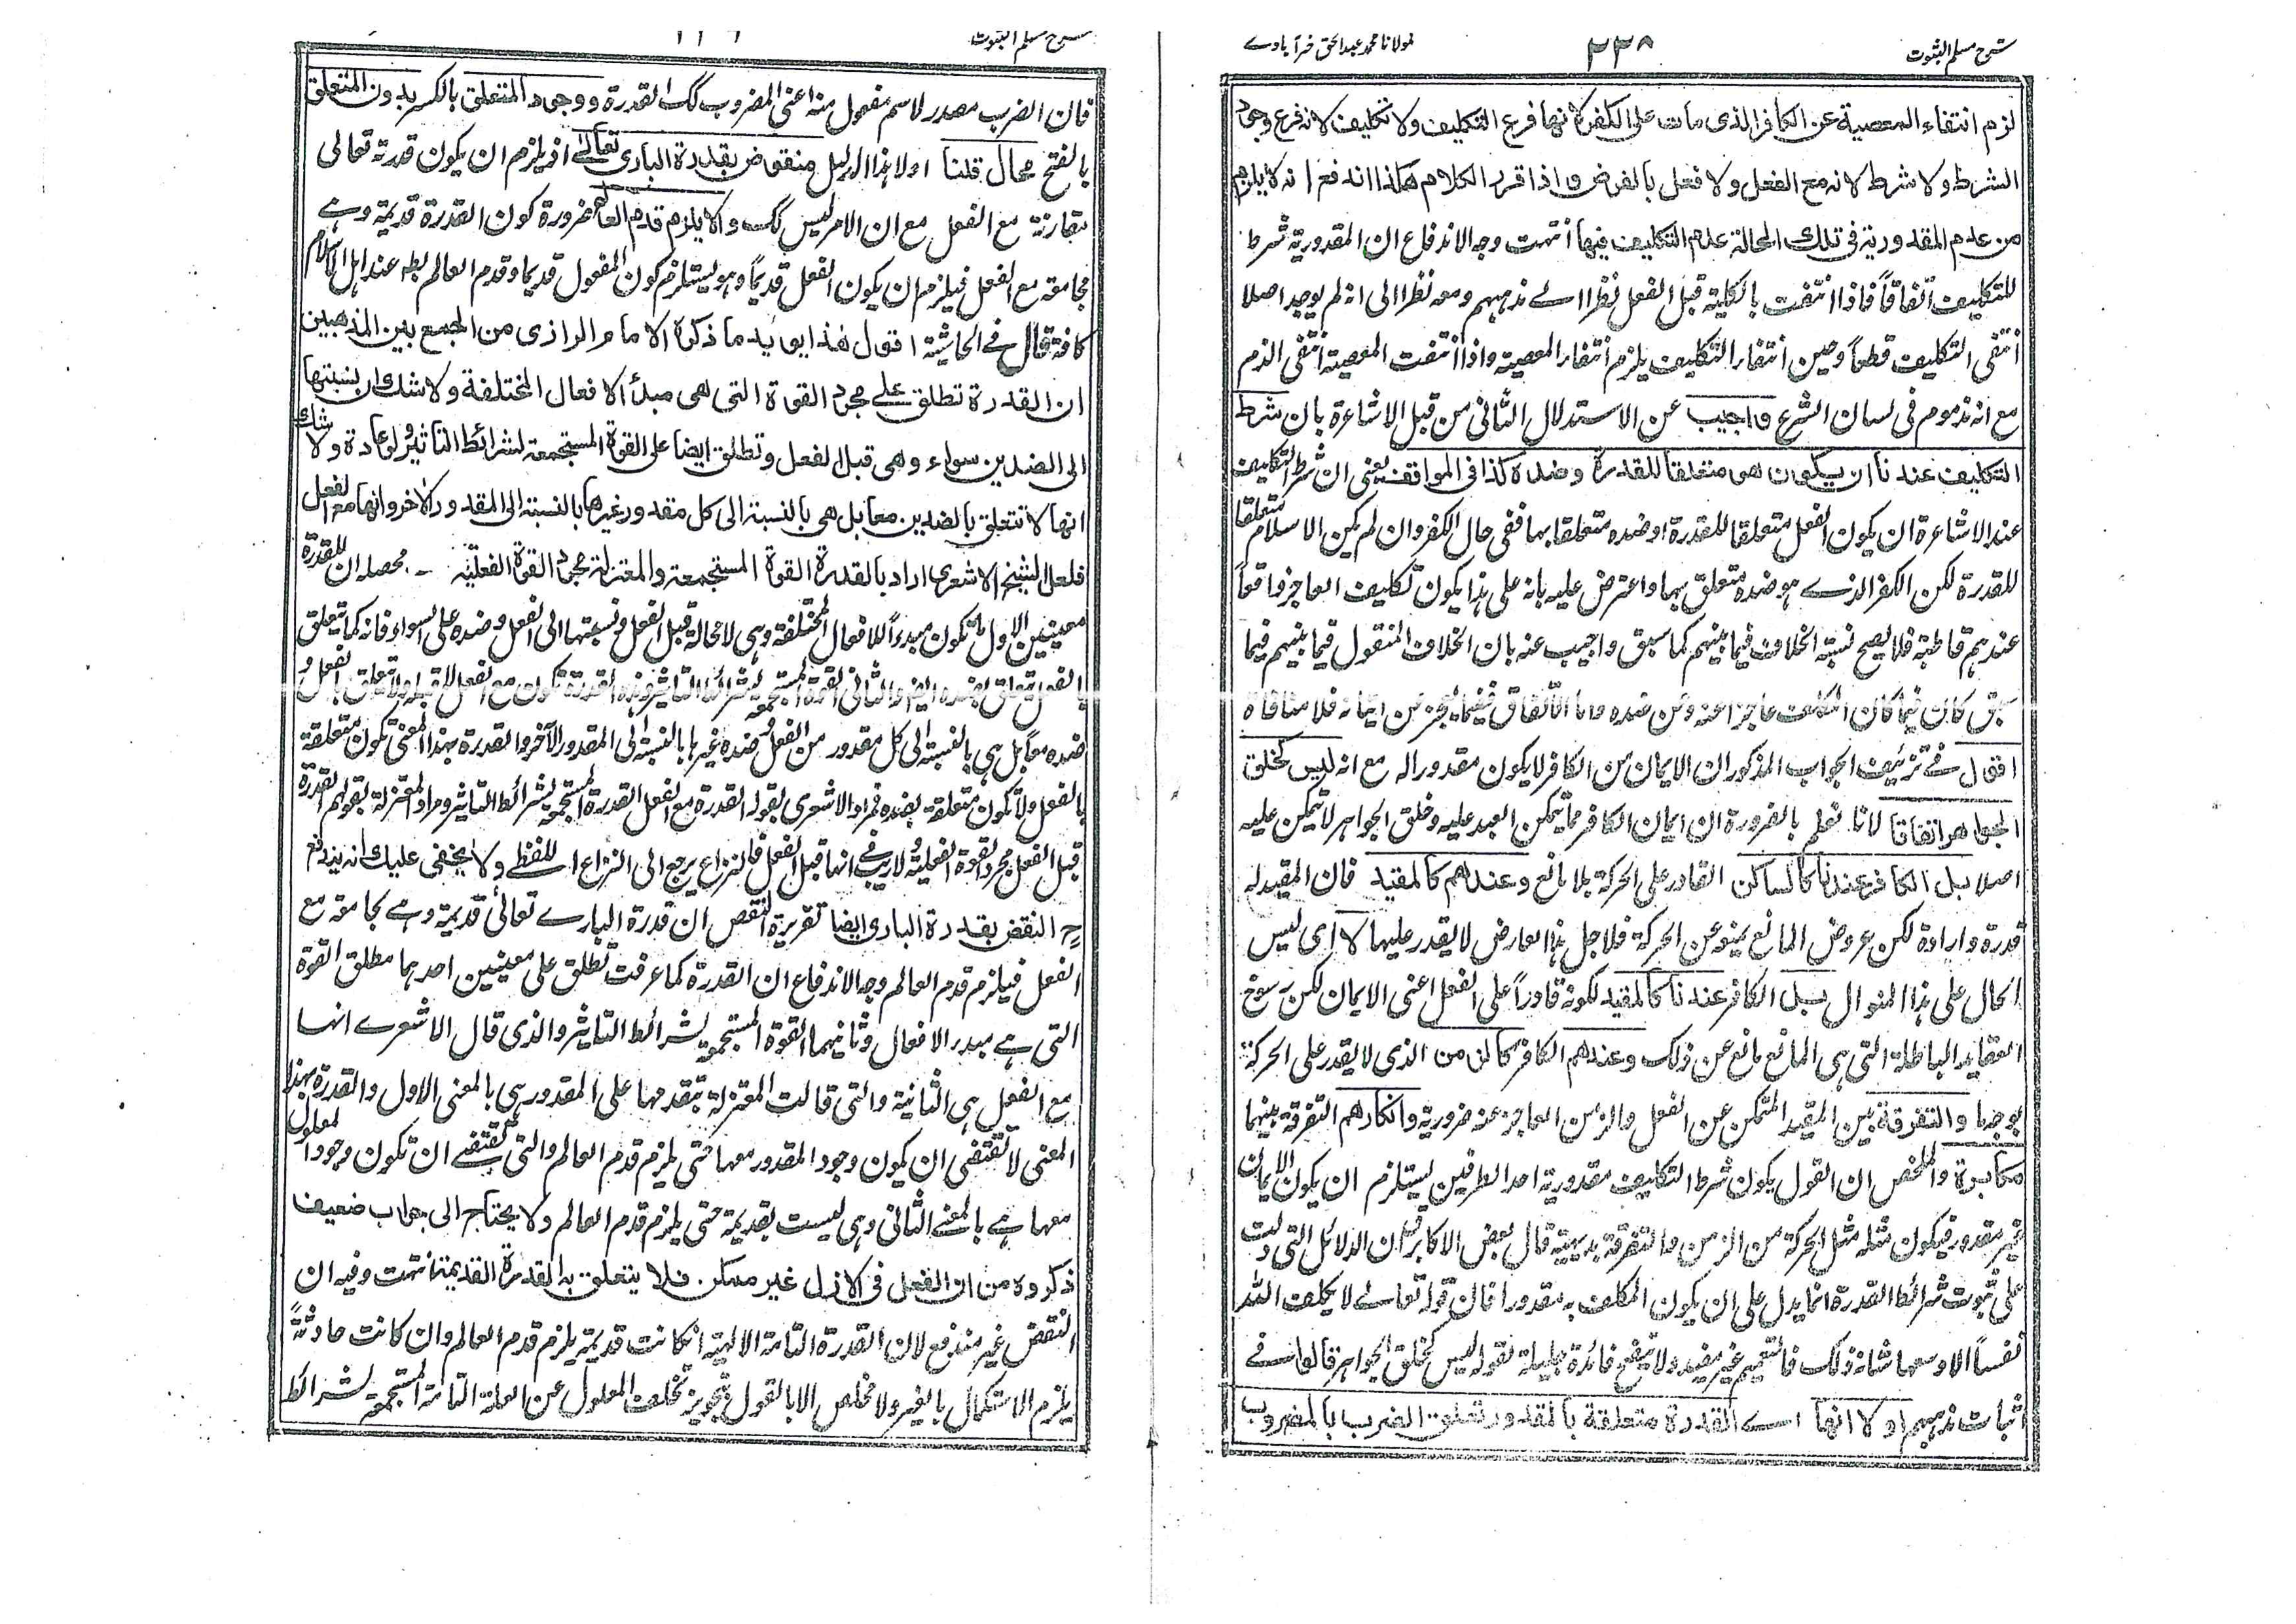 شرح مسلم الثبوت ٢٣٨ لمولانا محمد عبدالحق خیرآبادے
لزم انتفاء المعصية عن الكافر الذى مات على الكفر لانها فرع التكليف ولا تكليف لانه فرع وجود
الشرط ولا شرط لانه مع الفعل ولا فعل بالفرض واذا قرر الكلام هكذا اندفع انه لا يلزم
من عدم المقدورية فى تلك الحالة عدم التكليف فيها انتهت وجه الاندفاع ان المقدورية شرط
للتكليف اتفاقاً فاذا انتفت بالكلية قبل الفعل نظرا الے مذهبهم ومعه نظرا الى انه لم يوجد اصلا
انتفى التكليف قطعاً وحين انتفاء التكليف يلزم انتفاء المعصية واذا انتفت المعصية انتفى الذم
مع انه مذموم فى لسان الشرع واجيب عن الاستدلال الثانى من قبل الاشاعرة بان شرط
التكليف عندنا ان يكون هو متعلقا للقدرة او ضده كذا فى المواقف يعنى ان شرط التكليف
عند الاشاعرة ان يكون الفعل متعلقا للقدرة او ضده متعلقا بها ففى حال الكفر وان لم يكن الاسلام متعلقا
للقدرة لكن الكفر الذے هو ضده متعلق بها واعترض عليه بانه على هذا يكون تكليف العاجز واقعاً
عندهم قاطبة فلا يصح نسبة الخلاف فيما بينهم كما سبق واجيب عنه بان الخلاف المنقول فيما بينهم فيما
سبق كان فيما كان المكلف عاجزا عنه وعن ضده واما الاتفاق ففيما يعجز عن اتيانه فلا منافاة
اقول فے تزئيف الجواب المذكور ان الايمان من الكافر لا يكون مقدورا له مع انه ليس كخلق
الجواهر اتفاقا لانا نعلم بالضرورة ان ايمان الكافر مما يتمكن العبد عليه وخلق الجواهر لا يتمكن عليه
اصلا بل الكافر عندنا كالساكن القادر على الحركة بلا مانع وعندهم كالمقيد فان المقيد له
قدرة وارادة لكن عروض المانع يمنعه عن الحركة فلاجل هذا العارض لا يقدر عليها لا اى ليس
الحال على هذا المنوال بل الكافر عندنا كالمقيد لكونه قادراً على الفعل اعنى الايمان لكن رسوخ
العقايد الباطلة التى هى المانع مانع عن ذلك وعندهم الكافر كالزمن الذى لا يقدر على الحركة
بوجه ما والتفرقة بين المقيد المتمكن عن الفعل والزمن العاجز عنه ضرورية وانكارهم التفرقة بينهما
مكابرة والملخص ان القول بكون شرط التكليف مقدورية احد الطرفين يستلزم ان يكون الايمان
غير مقدور فيكون مثله مثل الحركة من الزمن والتفرقة بديهية قال بعض الاكابر ان الدلائل التى دلت
على ثبوت شرائط القدرة انما يدل على ان يكون المكلف به مقدورا فان قوله تعالے لا يكلف الله
نفساً الا وسعها شانه ذلك فالتعميم غير مفيد ولا ينفع فائدة جليلة لقوله ليس كخلق الجواهر قالوا فے
اثبات مذهبهم اولا انها اے القدرة متعلقة بالمقدور تعلق الضرب بالمضروب
شرح مسلم الثبوت
فان الضرب مصدر لاسم مفعول منه اعنى المضروب كك القدرة ووجود المتعلق بالكسر بدون المتعلق
بالفتح محال قلنا اولا هذا الدليل منقوض بقدرة البارى تعالے اذ يلزم ان يكون قدرة تعالى
مقارنة مع الفعل مع ان الامر ليس كك والا يلزم قدم العالم ضرورة كون القدرة قديمة وهے
مجامعة مع الفعل فيلزم ان يكون الفعل قديماً وهو يستلزم كون المفعول قديما وقدم العالم بط عند اهل الكلام
كافة قال فے الحاشية اقول هذا يويد ما ذكره الامام الرازى من الجمع بين المذهبين
ان القدرة تطلق علے مجرد القوة التى هى مبدأ الافعال المختلفة ولا شك ان نسبتها
الى الضدين سواء وهى قبل الفعل وتطلق ايضا على القوة المستجمعة لشرائط التاثير ولو عادة ولا شك
انها لا تتعلق بالضدين معا بل هى بالنسبة الى كل مقدور غيرها بالنسبة الى المقدور الآخر وانها مع الفعل
فلعل الشيخ الاشعرى اراد بالقدرة القوة المستجمعة والمعتزلة مجرد القوة الفعلية - محصله ان للقدرة
معنيين الاول ما تكون مبدءاً للافعال المختلفة وهى لا محالة قبل الفعل ونسبتها الى الفعل وضده على السواء فانه كما يتعلق
بالفعل يتعلق بضده ايضا والثانى القوة المستجمعة لشرائط التاثير وهذه القدرة تكون مع الفعل لا قبله ولا تتعلق بالفعل و
ضده معا بل هى بالنسبة الى كل مقدور من الفعل وضده غيرها بالنسبة الى المقدور الآخر والقدرة بهذا المعنى تكون متعلقة
بالفعل ولا تكون متعلقة بضده فمراد الاشعرى بقوله القدرة مع الفعل القدرة المستجمعة لشرائط التاثير ومراد المعتزلة بقولهم القدرة
قبل الفعل مجرد القوة الفعلية ولا ريب فے انها قبل الفعل فالنزاع يرجع الى النزاع اللفظے ولا يخفى عليك انه يندفع
ح النقض بقدرة البارى ايضا تقريره النقض ان قدرة البارے تعالى قديمة وهے مجامعة مع
الفعل فيلزم قدم العالم وجه الاندفاع ان القدرة كما عرفت تطلق على معنيين احدهما مطلق القوة
التى هے مبدء الافعال وثانيهما القوة المستجمعة لشرائط التاثير والذى قال الاشعرے انها
مع الفعل هى الثانية والتى قالت المعتزلة بتقدمها على المقدور هى بالمعنى الاول والقدرة بهذا
المعنى لا تقتضى ان يكون وجود المقدور معها حتى يلزم قدم العالم والتى تقتضے ان تكون وجود المعلول
معها هے بالمعنے الثانى وهى ليست بقديمة حتى يلزم قدم العالم ولا يحتاج الى جواب ضعيف
ذكروه من ان الفعل فى الازل غير ممكن فلا يتعلق به القدرة القديمة انتهت وفيه ان
النقض غير مندفع لان القدرة التامة الالهية ان كانت قديمة يلزم قدم العالم وان كانت حادثةً
يلزم الاستكمال بالغير ولا مخلص الا بالقول بتجويز تخلف المعلول عن العلة التامة المستجمعة لشرائط